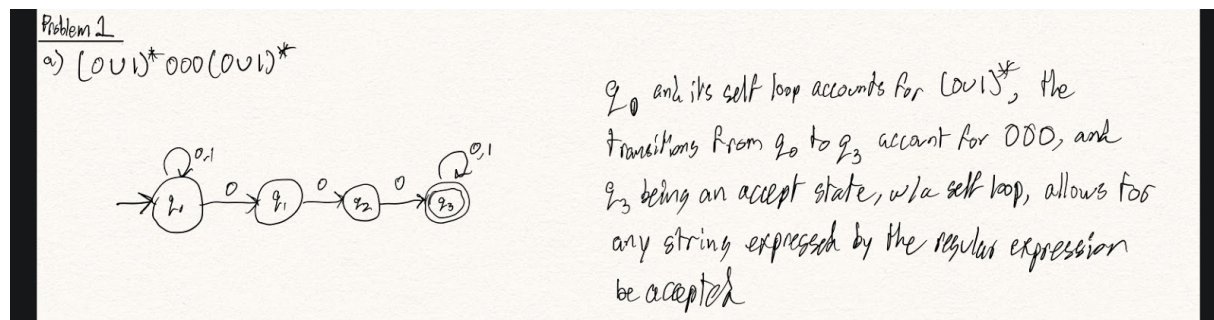 Problem 1
a) (0∪1)*000(0∪1)*
0,1
0,1
0
0
0
q₀
q₁
q₂
q₃
q₀ and its self loop accounts for (0∪1)*, the
transitions from q₀ to q₃ account for 000, and
q₃ being an accept state, w/a self loop, allows for
any string expressed by the regular expression
be accepted